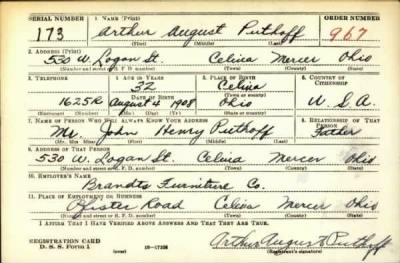 SERIAL NUMBER 1. NAME (Print) ORDER NUMBER
173 Arthur August Puthoff 967
(First) (Middle) (Last)
2. ADDRESS (Print)
530 W. Logan St. Celina Mercer Ohio
(Number and street or R. F. D. number) (Town) (County) (State)
3. TELEPHONE 4. AGE IN YEARS 5. PLACE OF BIRTH 6. COUNTRY OF CITIZENSHIP
32 Celina
DATE OF BIRTH (Town or county)
1625R August 4 1908 Ohio U. S. A.
(Exchange) (No.) (Mo.) (Day) (Yr.) (State or country)
7. NAME OF PERSON WHO WILL ALWAYS KNOW YOUR ADDRESS 8. RELATIONSHIP OF THAT PERSON
Mr. John Henry Puthoff Father
(Mr. Mrs. Miss) (First) (Middle) (Last)
9. ADDRESS OF THAT PERSON
530 W. Logan St. Celina Mercer Ohio
(Number and street or R. F. D. number) (Town) (County) (State)
10. EMPLOYER'S NAME
Brandts Furniture Co.
11. PLACE OF EMPLOYMENT OR BUSINESS
Pfister Road Celina Mercer Ohio
(Number and street or R. F. D. number) (Town) (County) (State)
I AFFIRM THAT I HAVE VERIFIED ABOVE ANSWERS AND THAT THEY ARE TRUE.
REGISTRATION CARD
D. S. S. Form 1 (over) 16-17105 Arthur August Puthoff
(Registrant's signature)